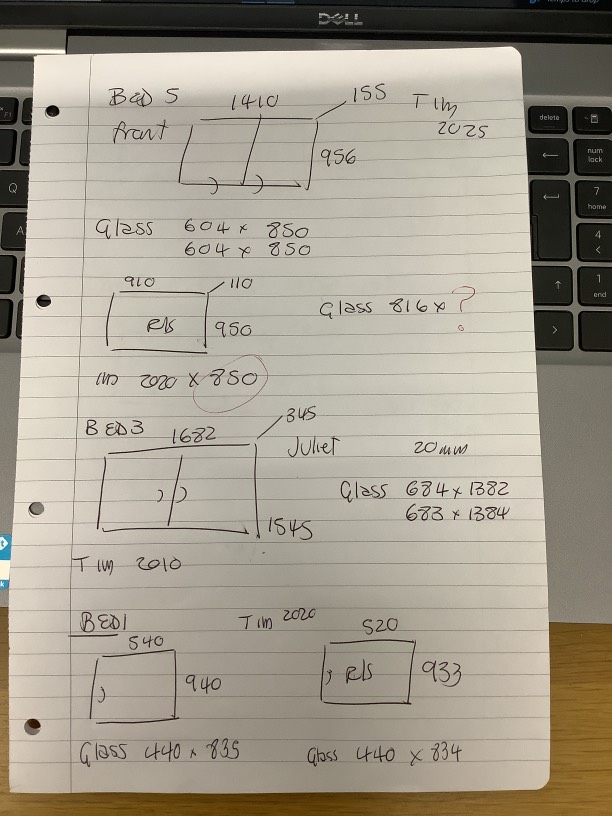 DELL
BED 5 1410 155 TIM
front 2025
956
Glass 604 x 850
604 x 850
910 110
R/S 950 Glass 816 x ?
2020 x 850
BED 3 1682 345
Juliet 20mm
Glass 684 x 1382
683 x 1384
1545
TIM 2010
BED1 TIM 2020 520
540
940 R/S 933
Glass 440 x 835 Glass 440 x 834
delete
num
lock
7
home
4
1
end
Q
A